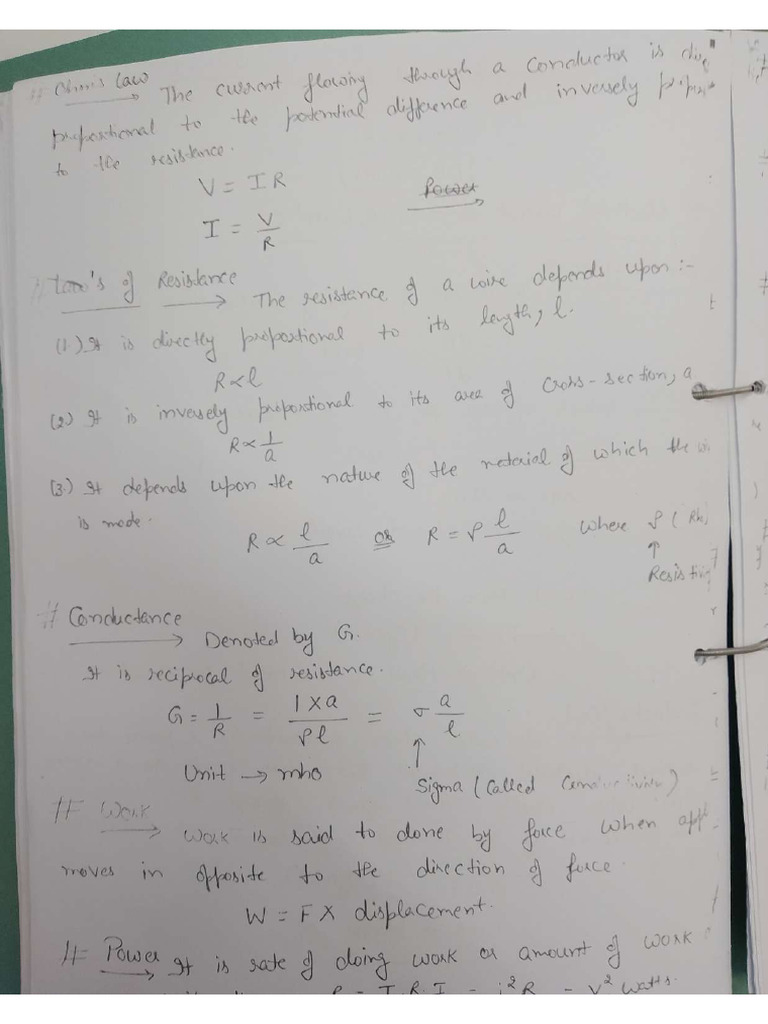 # Ohm's Law → The current flowing through a conductor is
proportional to the potential difference and inversely
to the resistance.
V = IR
Power
I = V/R
# Law's of Resistance → The resistance of a wire depends upon :-
(1.) It is directly proportional to its length, l.
R ∝ l
(2.) It is inversely proportional to its area of cross-section, a
R ∝ 1/a
(3.) It depends upon the nature of the metarial of which the
is made.
R ∝ l/a or R = ρ l/a where ρ (Rh
↑
Resistiv
# Conductance → Denoted by G.
It is reciprocal of resistance.
G = 1/R = 1×a/ρl = σ a/l
↑
Unit → mho
Sigma (called Conductivity)
# Work → Work is said to done by force when
moves in opposite to the direction of force.
W = F × displacement.
# Power → It is rate of doing work or amount of work
= I R I = i²R = V² Watts.